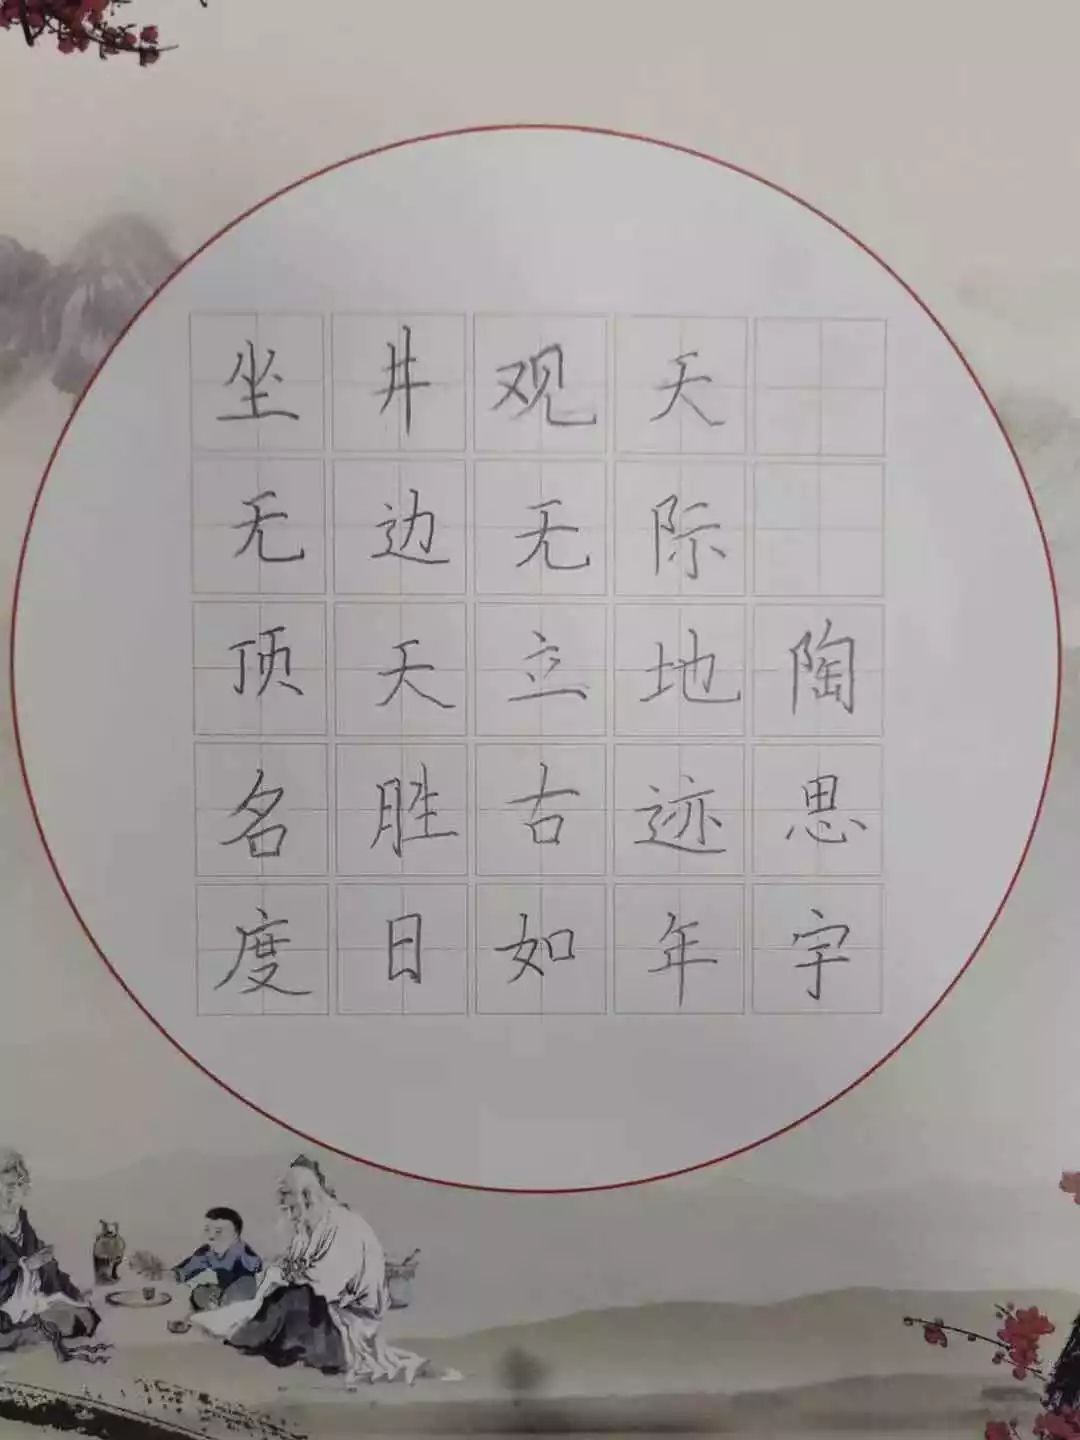 坐井观天
无边无际
顶天立地陶
名胜古迹思
度日如年宇